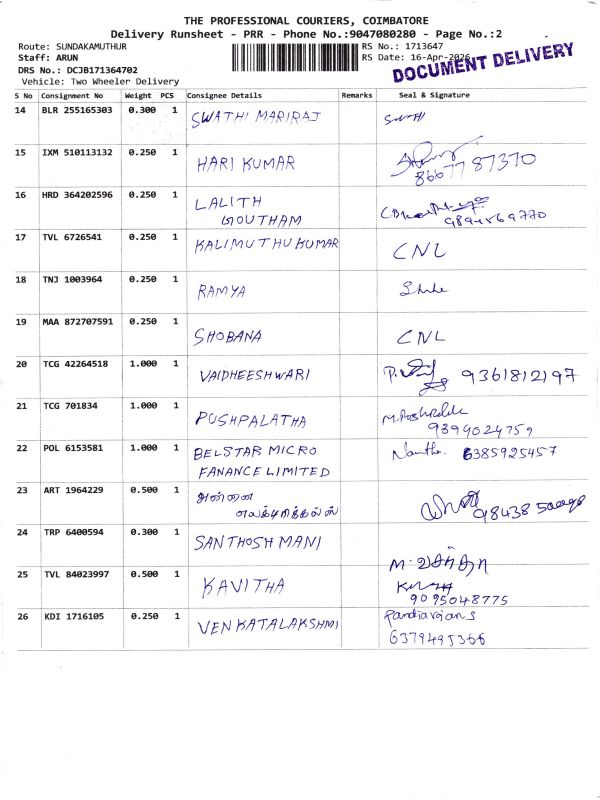 THE PROFESSIONAL COURIERS, COIMBATORE
Delivery Runsheet - PRR - Phone No.:9047080280 - Page No.:2
Route: SUNDAKAMUTHUR
RS No.: 1713647
Staff: ARUN
RS Date: 16-Apr-2026
DRS No.: DCJB171364702
Vehicle: Two Wheeler Delivery
DOCUMENT DELIVERY
S No Consignment No Weight PCS Consignee Details Remarks Seal & Signature
14 BLR 255165303 0.300 1 SWATHI MARIRAJ
15 IXM 510113132 0.250 1 HARI KUMAR
8667787370
16 HRD 364202596 0.250 1 LALITH
GOUTHAM
17 TVL 6726541 0.250 1 KALIMUTHUKUMAR CNL
18 TNJ 1003964 0.250 1 RAMYA
19 MAA 872707591 0.250 1 SHOBANA CNL
20 TCG 42264518 1.000 1 VAIDHEESHWARI 9361812197
21 TCG 701834 1.000 1 PUSHPALATHA
9899024759
22 POL 6153581 1.000 1 BELSTAR MICRO 6385925457
FANANCE LIMITED
23 ART 1964229 0.500 1 அன்னை
எலக்ட்ரிக்கல்ஸ்
24 TRP 6400594 0.300 1 SANTHOSH MANI
25 TVL 84023997 0.500 1 KAVITHA
9095048775
26 KDI 1716105 0.250 1 VENKATALAKSHMI Pandiarajan S
6379495366